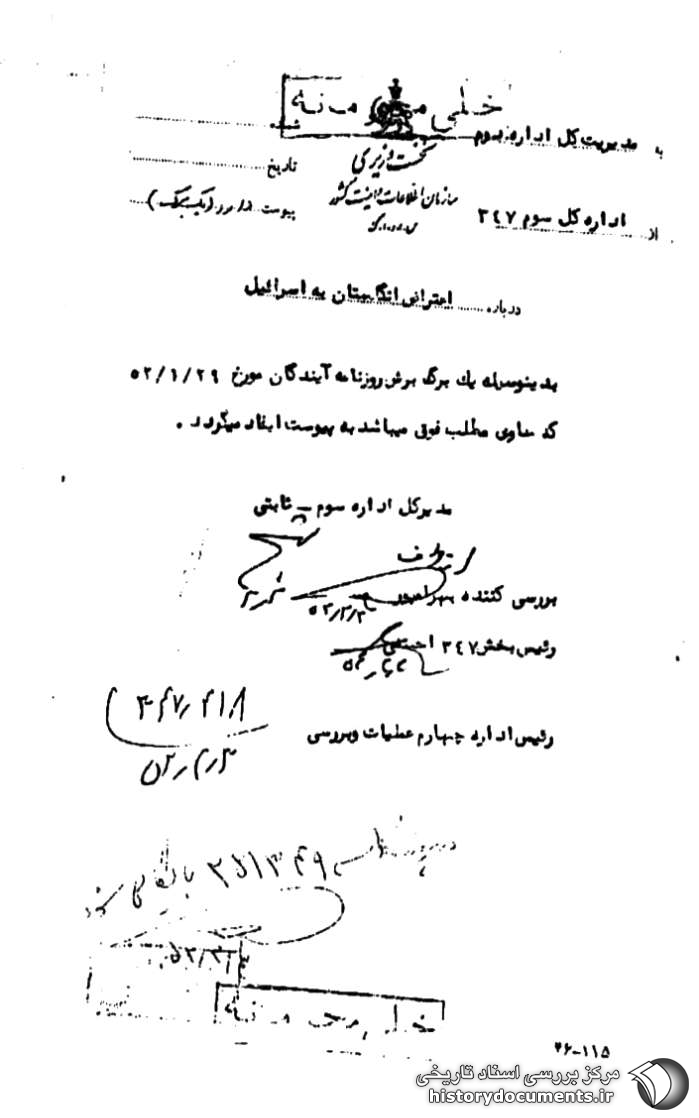 خیلی محرمانه
به مدیریت کل اداره دوم
شماره
نخست وزیری
تاریخ
سازمان اطلاعات و امنیت کشور
س.ا.و.ا.ک
از اداره کل سوم ۳۴۷
پیوست دارد (یک برگ)
درباره اعتراض انگلستان به اسرائیل
بدینوسیله یک برگ برش روزنامه آیندگان مورخ ۵۲/۱/۲۹
که حاوی مطلب فوق میباشد به پیوست ایفاد میگردد .
مدیرکل اداره سوم - ثابتی
از طرف
بررسی کننده
۵۲/۲/۲
رئیس بخش ۳۴۷
رئیس اداره چهارم عملیات وبررسی
۳۴۷/۴۱۸
۵۲/۲/۳
۲۵۱۳۴۹ بایگانی شود
۵۲/۳/۳
خیلی محرمانه
۳۶-۱۱۵
مرکز بررسی اسناد تاریخی
historydocuments.ir